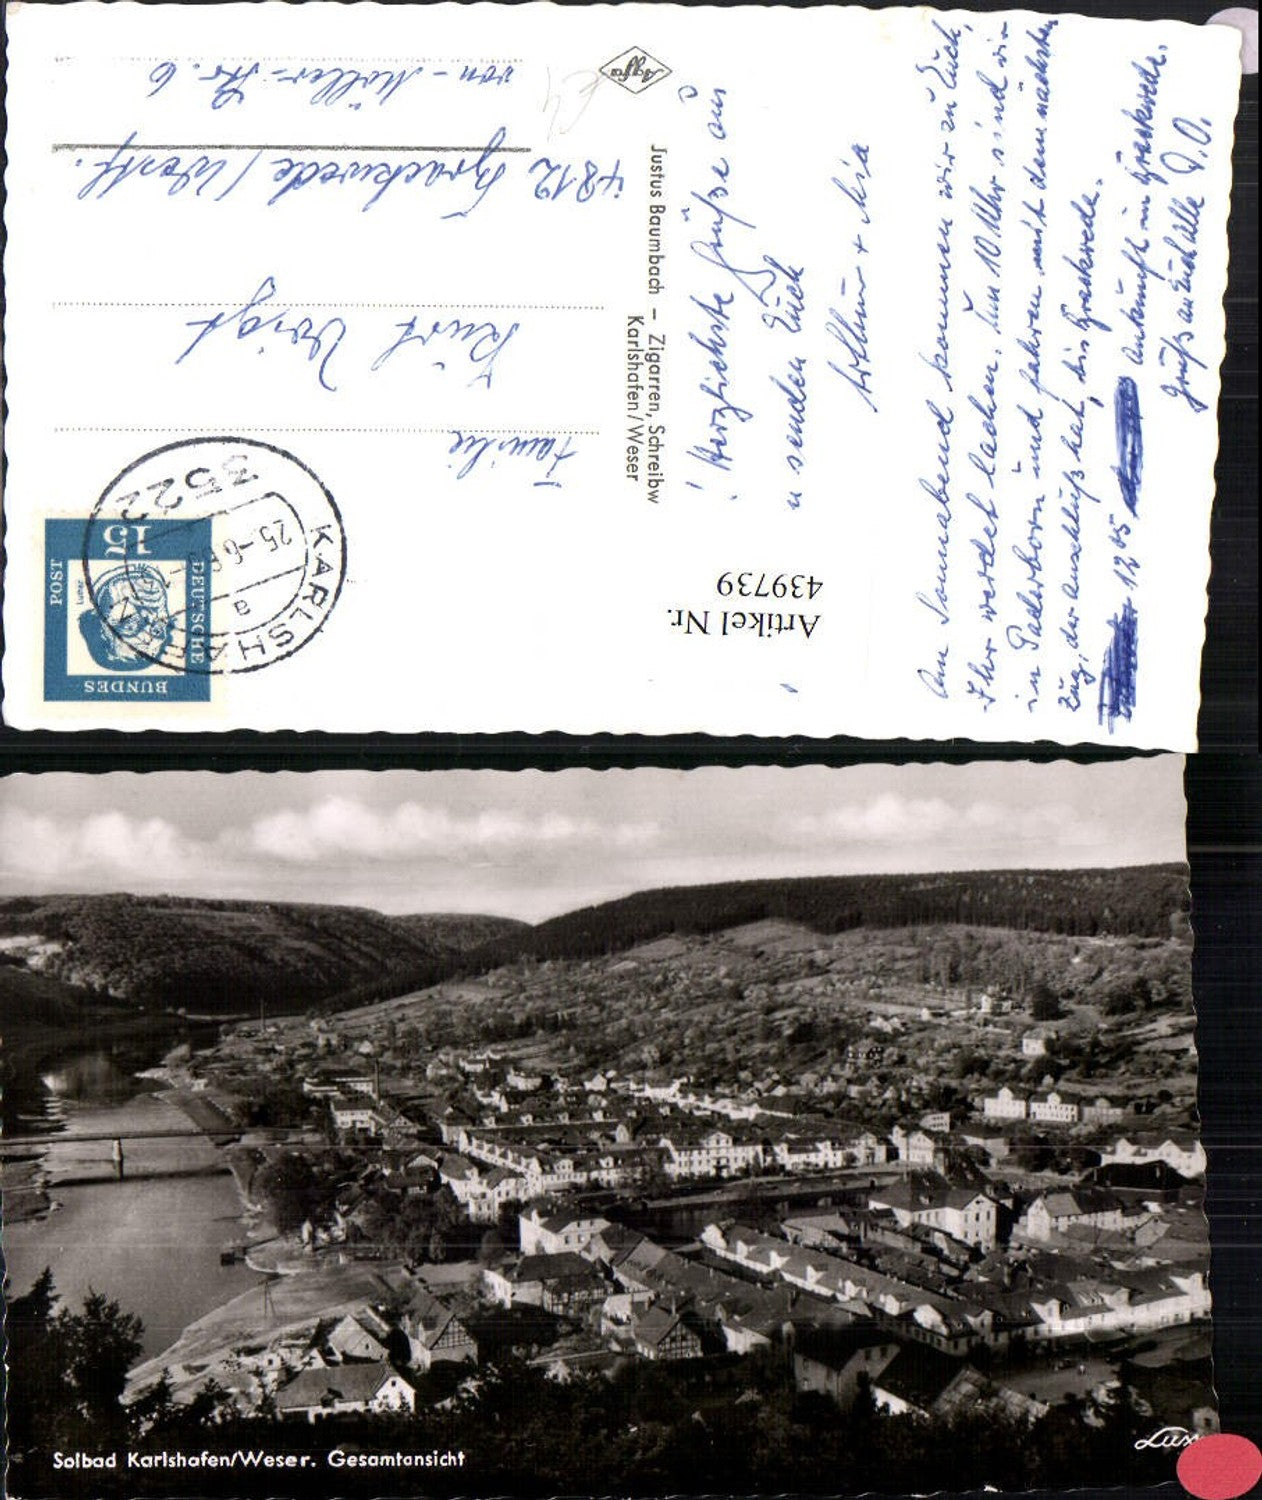 Am Sonnabend kommen wir zu Euch,
Ihr werdet lachen. Um 10 Uhr sind wir
in Paderborn und fahren mit dem nächsten
Zug, der Anschluß hat, bis Brackwede.
12 05 Ankunft in Brackwede.
Gruß an Euch alle D.O.
Herzlichste Grüße aus
senden Euch
Arthur + Mia
Artikel Nr.
439739
Justus Baumbach – Zigarren, Schreibw
Karlshafen/Weser
Agfa
DEUTSCHE
BUNDES
POST
15
Luther
3522
KARLSHAFEN
25.-6.63
a
Familie
Kurt Voigt
4812 Brackwede/Westf.
von-Möller-Str. 6
Solbad Karlshafen/Weser. Gesamtansicht
Lux